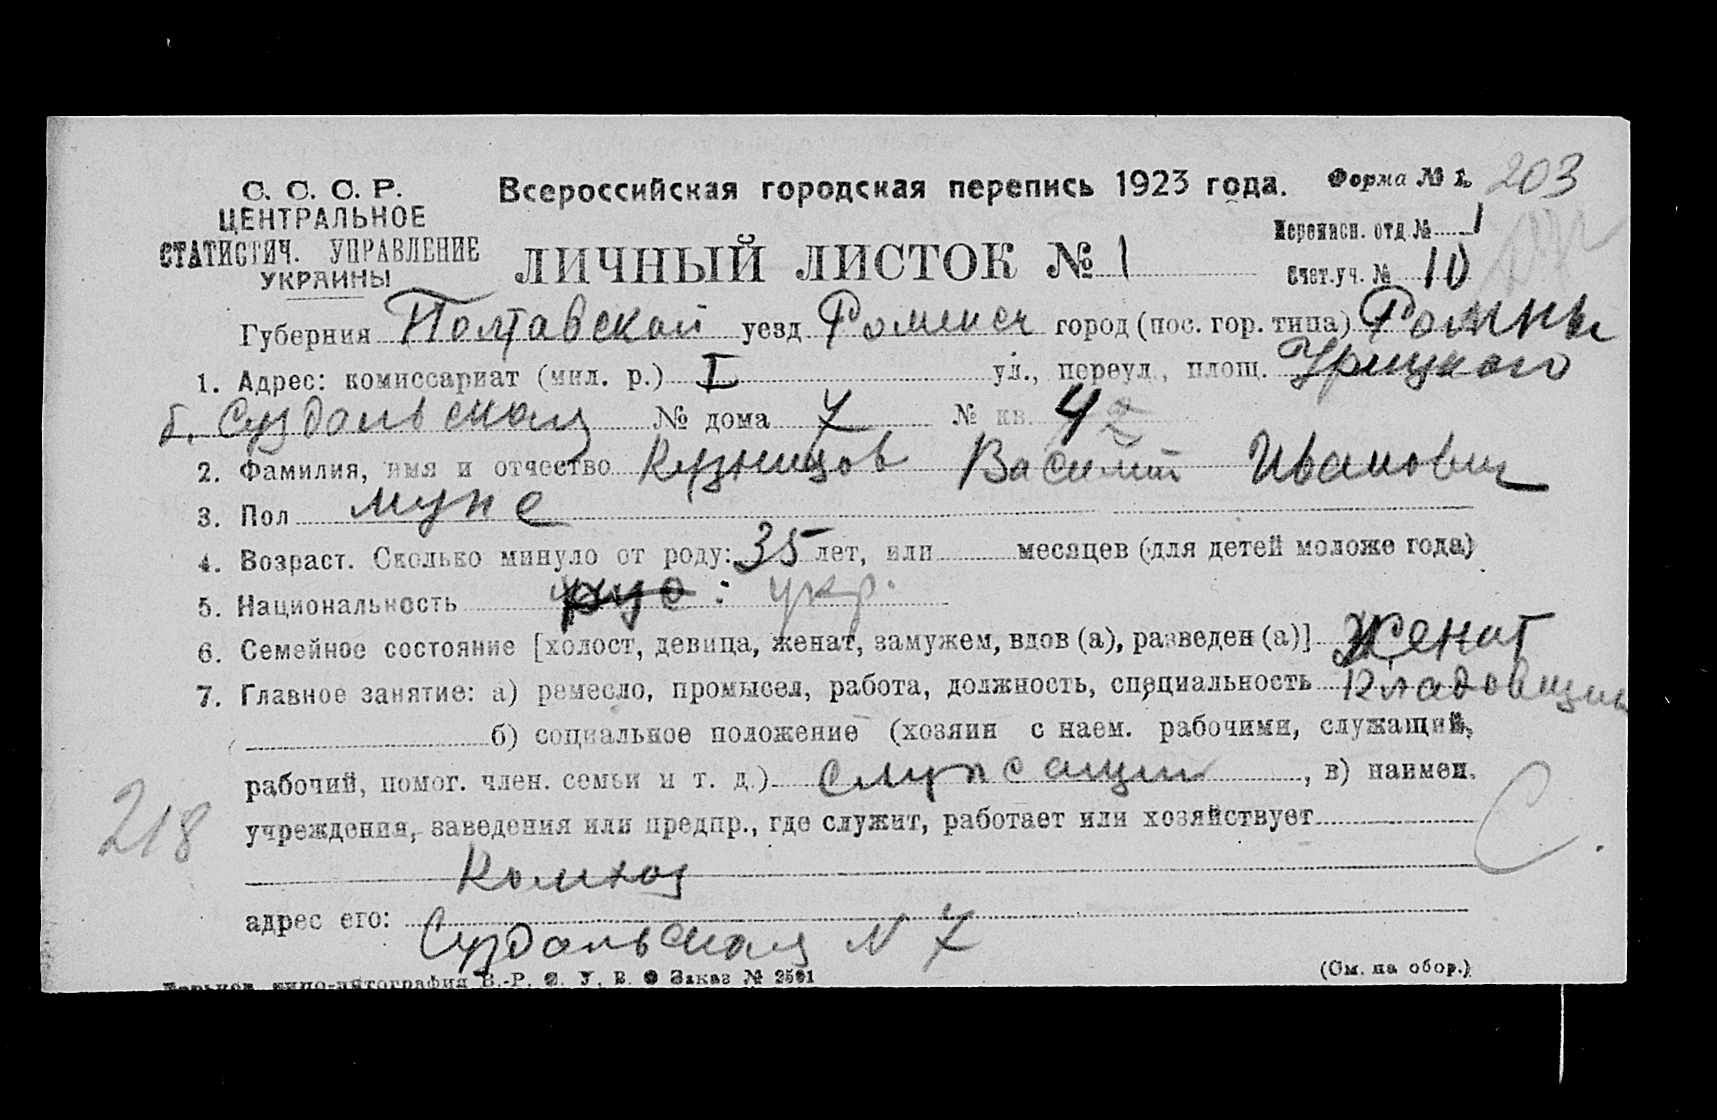 С. С. С. Р.
ЦЕНТРАЛЬНОЕ
СТАТИСТИЧ. УПРАВЛЕНИЕ
УКРАИНЫ
Всероссийская городская перепись 1923 года.
Форма № 1. 203
ЛИЧНЫЙ ЛИСТОК № 1
Переписн. отд. № 1
Счет. уч. № 10
Губерния Полтавской уезд Роменск город (пос. гор. типа) Ромны
1. Адрес: комиссариат (мил. р.) I ул., переул., площ. Урицкого
б. Суздальская № дома 7 № кв. 4
2. Фамилия, имя и отчество Кузнецов Василий Иванович
3. Пол мужс
4. Возраст. Сколько минуло от роду: 35 лет, или месяцев (для детей моложе года)
5. Национальность рус : укр.
6. Семейное состояние [холост, девица, женат, замужем, вдов (а), разведен (а)] Женат
7. Главное занятие: а) ремесло, промысел, работа, должность, специальность Кладовщик
б) социальное положение (хозяин с наем. рабочими, служащий,
рабочий, помог. член. семьи и т. д.) служсащий, в) наимен.
учреждения, заведения или предпр., где служит, работает или хозяйствует
218
С.
Комхоз
адрес его: Суздальская N 7
Харьков, типо-литография В.-Р. Заказ № 2501
(См. на обор.)